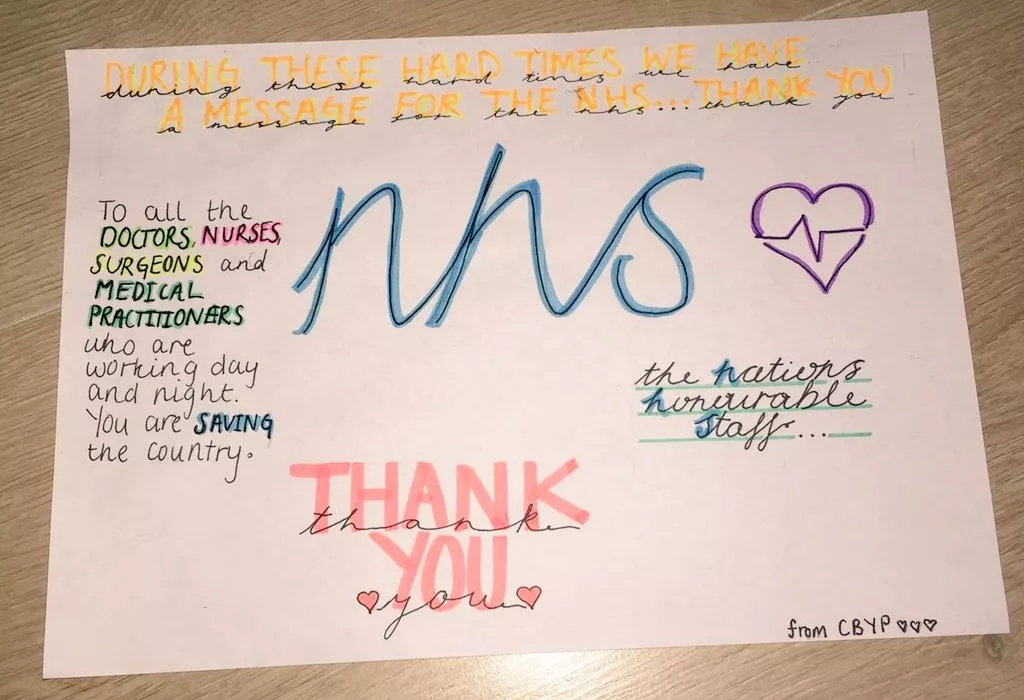 DURING THESE HARD TIMES WE HAVE
during these hard times we have
A MESSAGE FOR THE NHS...THANK YOU
a message for the nhs...thank you
nhs
To all the
DOCTORS, NURSES,
SURGEONS and
MEDICAL
PRACTITIONERS
who are
working day
and night.
You are SAVING
the country.
the nations
honourable
staff...
THANK
thank
YOU
you
from CBYP